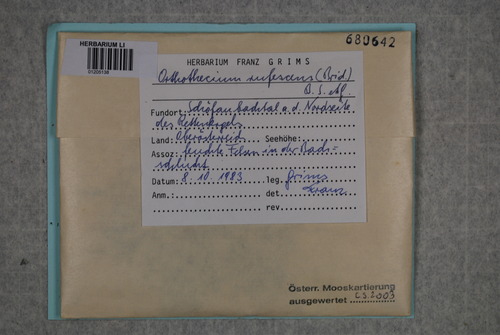 680642
HERBARIUM LI
HERBARIUM FRANZ GRIMS
Orthothecium rufescens (Brid)
B.S.
Fundort: a.d. Nordseite
des
Land: Oberösterreich Seehöhe:
Assoz: feuchte Felsen in der Bach-
schlucht
Datum: 8.10.1983 leg. Grims
Anm.: det Franz
rev.
Österr. Mooskartierung
ausgewertet CS.2003